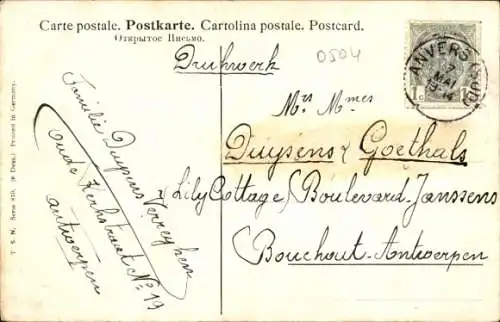 Carte postale. Postkarte. Cartolina postale. Postcard.
Открытое Письмо.
0504
Drukwerk
ANVERS
7
MAI
1 C 1 C
Mrs Mmes
Duysens & Goethals
Lily Cottage (Boulevard Janssens
Bouchout-Antwerpen
Familie Duysens Verreyken
Oude Kerkstraat No 19
antwerpen
T. S. N., Serie (6 Dess.) Printed in Germany.